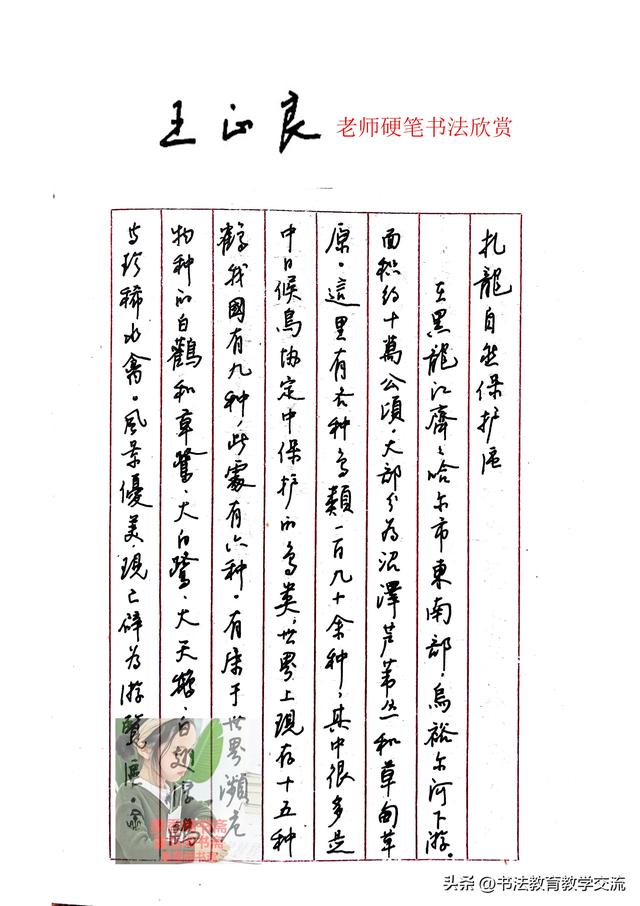 王正良 老师硬笔书法欣赏
扎龍自然保护區
在黑龍江齊〻哈尔市東南部，烏裕尔河下游。
面积约十萬公頃。大部分為沼澤芦苇丛和草甸草
原。這里有各种鸟類一百九十余种，其中很多是
中日候鳥协定中保护的鸟类，世界上現存十五种
鶴我國有九种，此處有六种。有屬于世界瀕危
物种的白鸛和草鹭、大白鹭、大天鹅、白翅浮鷗
与珍稀水禽。風景優美現已辟為游覽區。
头条 @书法教育教学交流